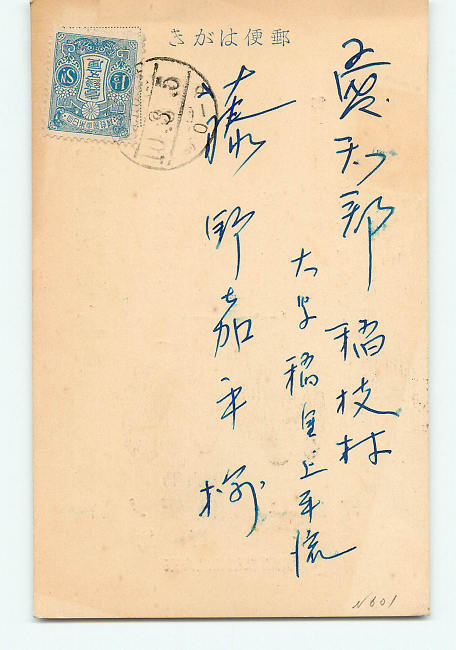 郵便はがき
愛知郡稲枝村
大字稲里上平流
藤野嘉平様
1½ SN
N601